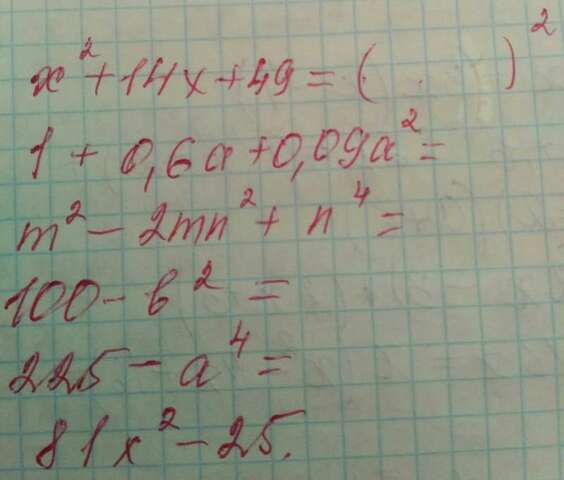 x² + 14x + 49 = (        )²
1 + 0,6a + 0,09a² =
m² - 2mn² + n⁴ =
100 - b² =
225 - a⁴ =
81x² - 25.